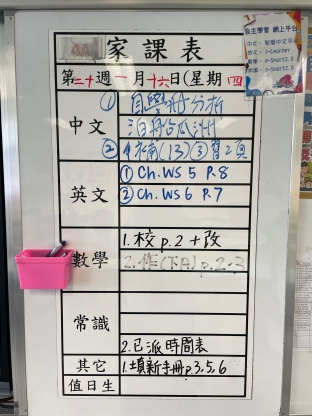 4A 家課表
自主學習 網上平台
第二十週一月十六日(星期四
中文
① 自學冊分析
②
(13)③
英文
① Ch. WS 5 P.8
② Ch. WS 6 P.7
數學
1. 校 p.2 + 改
2. 作(下A) p.2-3
常識
2. 已派時間表
其它
1. 填新手冊p.3,5,6
值日生